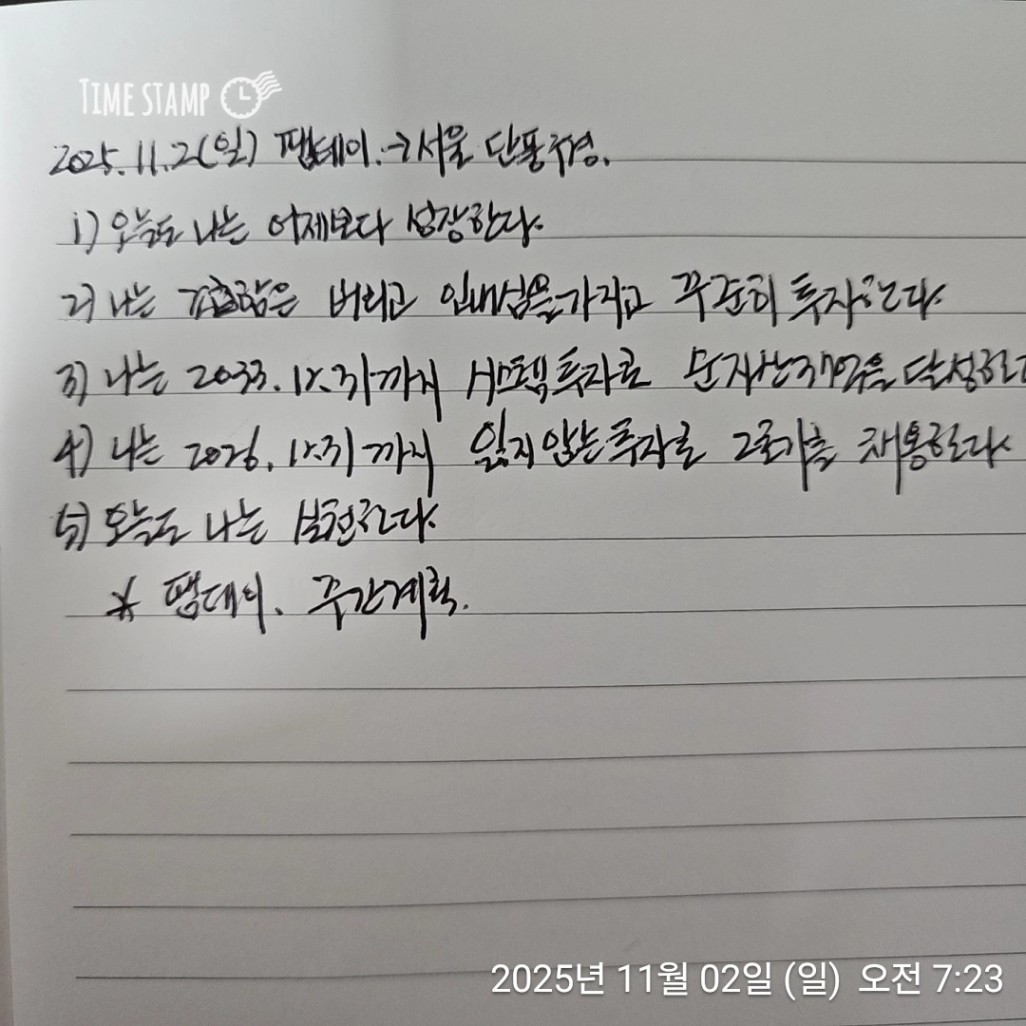 TIME STAMP
2025.11.2(일) 팸데이.→서울 단풍구경.
1) 오늘도 나는 어제보다 성장한다.
2) 나는 조급함은 버리고 인내심을 가지고 꾸준히 투자한다.
3) 나는 2033.12.31까지 시스템투자로 순자산 을 달성한다
4) 나는 2026.12.31까지 잃지않는 투자로 를 한다.
5) 오늘도 나는 실천한다.
* 팸데이. 주간계획.
2025년 11월 02일 (일) 오전 7:23